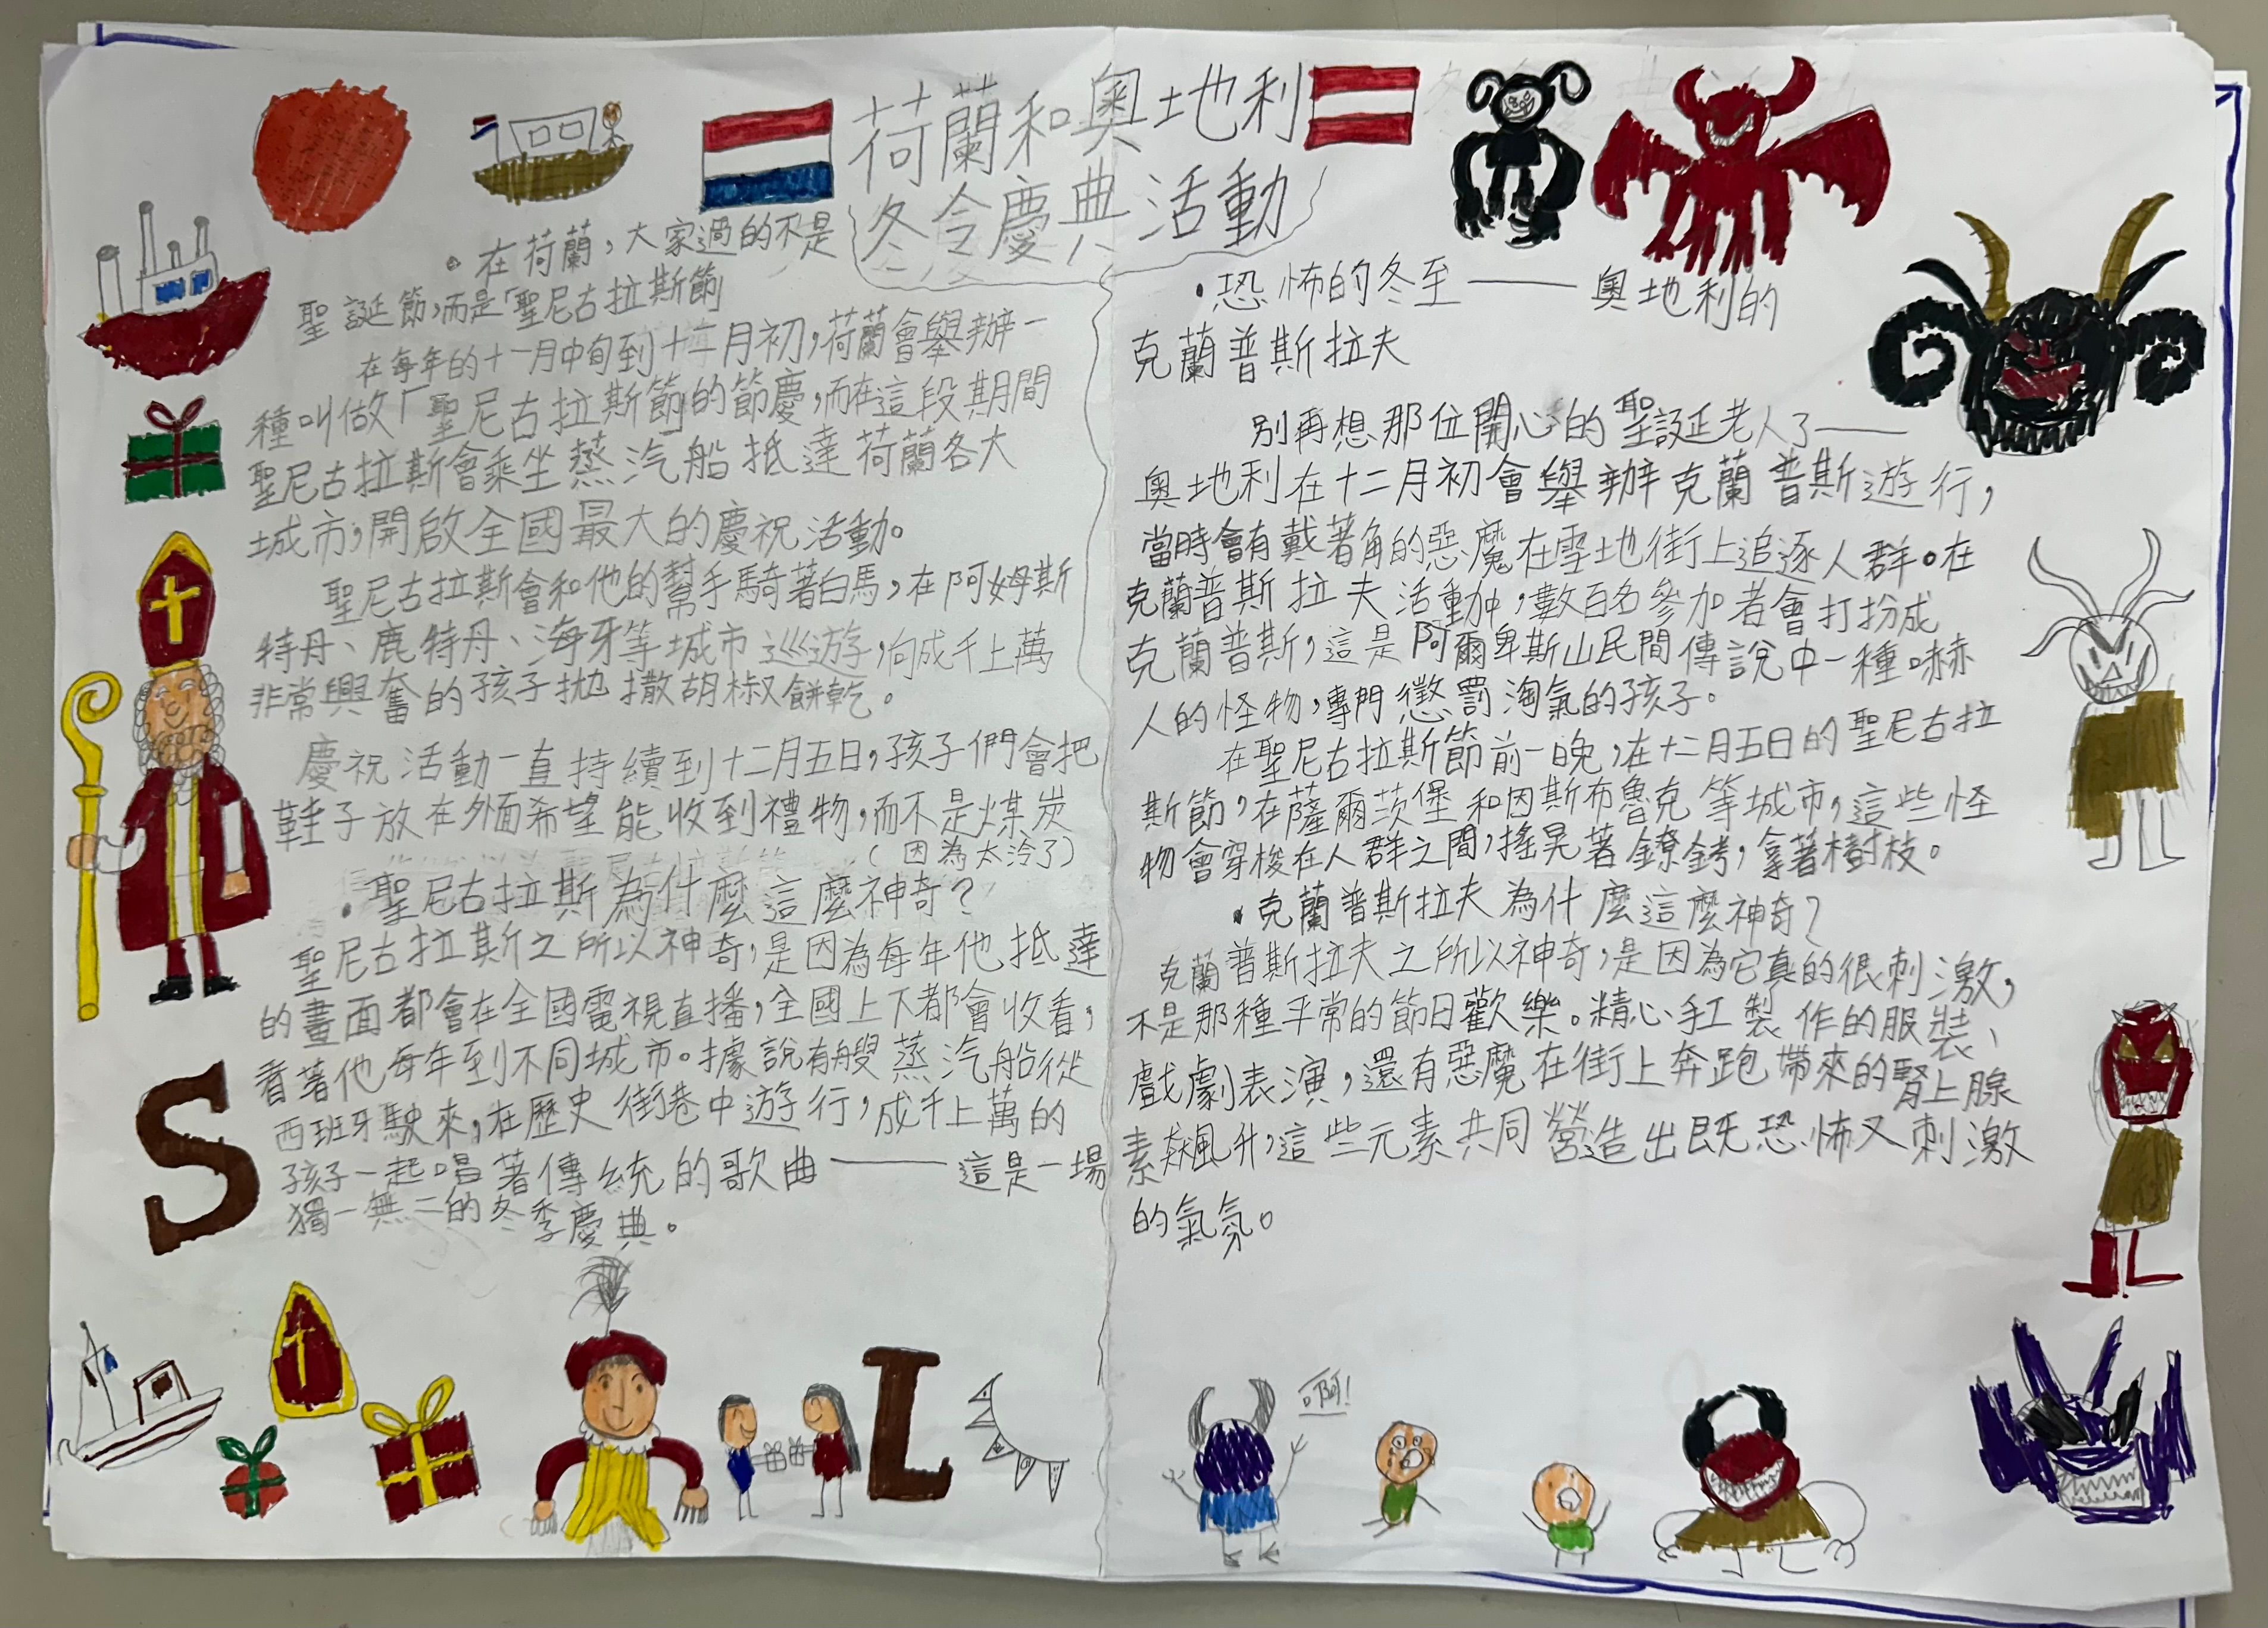 荷蘭和奧地利
冬令慶典活動
•在荷蘭，大家過的不是
聖誕節，而是「聖尼古拉斯節」
在每年的十一月中旬到十二月初，荷蘭會舉辦一
種叫做「聖尼古拉斯節」的節慶，而在這段期間
聖尼古拉斯會乘坐蒸汽船抵達荷蘭各大
城市，開啟全國最大的慶祝活動。
聖尼古拉斯會和他的幫手騎著白馬，在阿姆斯
特丹、鹿特丹、海牙等城市巡遊，向成千上萬
非常興奮的孩子拋撒胡椒餅乾。
慶祝活動一直持續到十二月五日，孩子們會把
鞋子放在外面希望能收到禮物，而不是煤炭
（因為太冷了）
•聖尼古拉斯為什麼這麼神奇？
聖尼古拉斯之所以神奇，是因為每年他抵達
的畫面都會在全國電視直播，全國上下都會收看，
看著他每年到不同城市。據說有艘蒸汽船從
西班牙駛來，在歷史街巷中遊行，成千上萬的
孩子一起唱著傳統的歌曲——這是一場
獨一無二的冬季慶典。
•恐怖的冬至——奧地利的
克蘭普斯拉夫
別再想那位開心的聖誕老人了——
奧地利在十二月初會舉辦克蘭普斯遊行，
當時會有戴著角的惡魔在雪地街上追逐人群。在
克蘭普斯拉夫活動中，數百名參加者會打扮成
克蘭普斯，這是阿爾卑斯山民間傳說中一種嚇
人的怪物，專門懲罰淘氣的孩子。
在聖尼古拉斯節前一晚，在十二月五日的聖尼古拉
斯節，在薩爾茨堡和因斯布魯克等城市，這些怪
物會穿梭在人群之間，搖晃著鐐銬，拿著樹枝。
•克蘭普斯拉夫為什麼這麼神奇？
克蘭普斯拉夫之所以神奇，是因為它真的很刺激，
不是那種平常的節日歡樂。精心手工製作的服裝、
戲劇表演，還有惡魔在街上奔跑帶來的腎上腺
素飆升，這些元素共同營造出既恐怖又刺激
的氣氛。
S
L
啊！